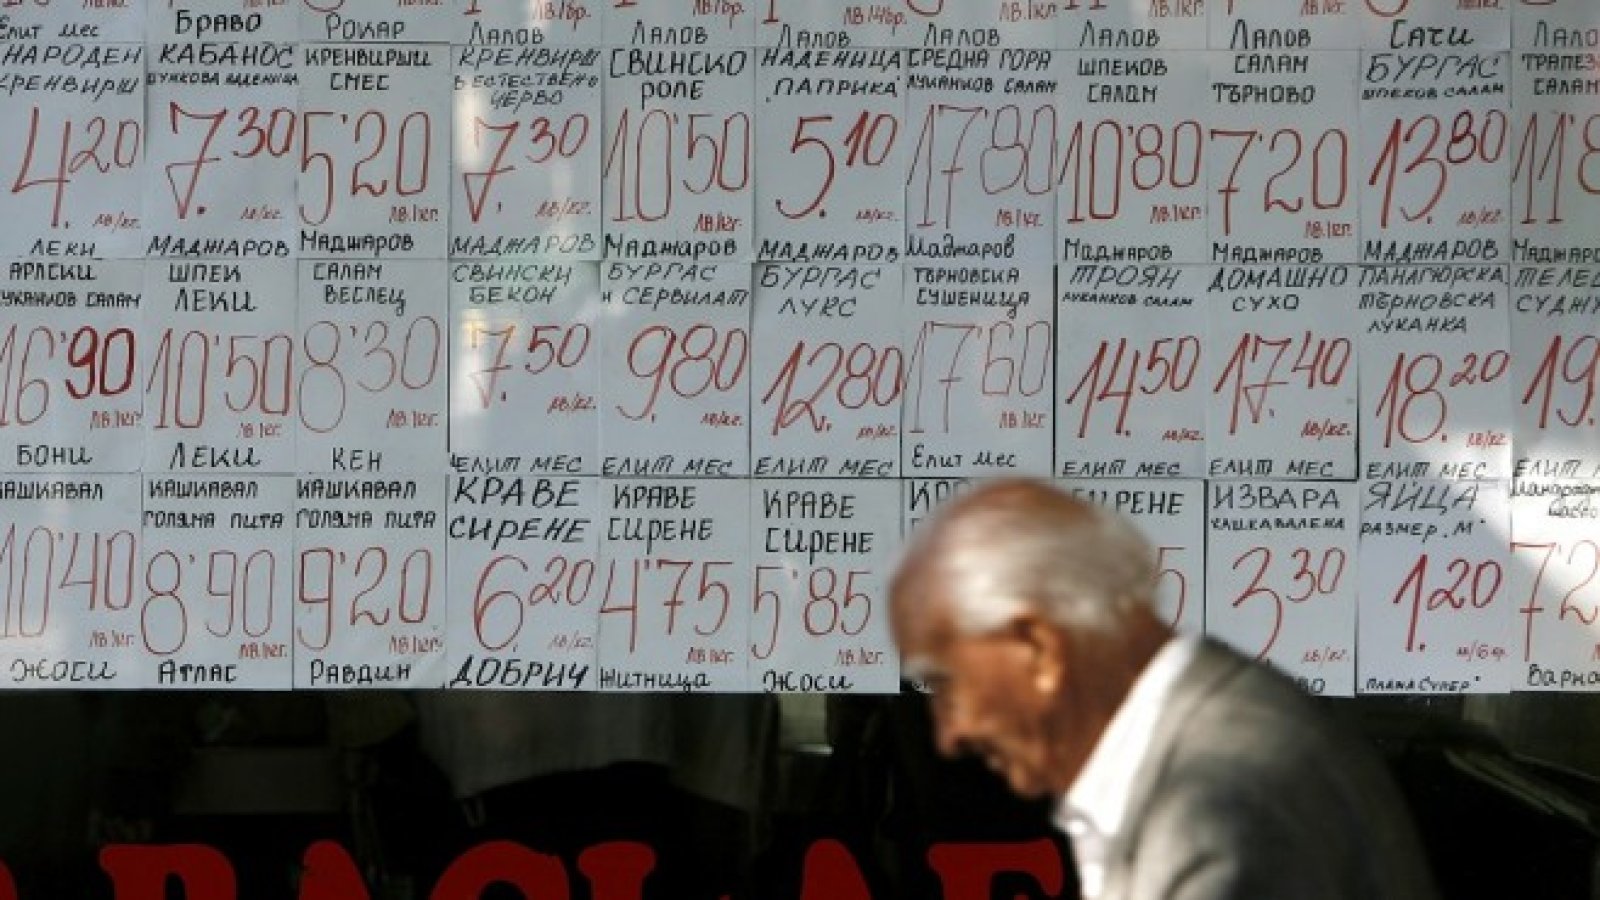 Елит мес
БРАВО
РОКАР
ЛАЛОВ
ЛАЛОВ
ЛАЛОВ
ЛАЛОВ
ЛАЛОВ
ЛАЛОВ
САЧИ
НАРОДЕН
КРЕНВИРШ
4.20
лв/кг.
ЛЕКИ
КАБАНОС
7.30
лв/кг.
МАДЖАРОВ
КРЕНВИРШИ
СМЕС
5'20
ЛВ.1кг.
МАДЖАРОВ
КРЕНВИРШ
В ЕСТЕСТВЕНО
ЧЕРВО
7.30
лв/кг.
МАДЖАРОВ
СВИНСКО
РОЛЕ
10'50
ЛВ/кг.
МАДЖАРОВ
НАДЕНИЦА
"ПАПРИКА"
5.10
лв/кг.
МАДЖАРОВ
СРЕДНА ГОРА
ЛУКАНКОВ САЛАМ
17'80
ЛВ.1кг.
МАДЖАРОВ
ШПЕКОВ
САЛАМ
10'80
ЛВ.1кг.
МАДЖАРОВ
САЛАМ
ТЪРНОВО
7'20
ЛВ.1кг.
МАДЖАРОВ
БУРГАС
ШПЕКОВ САЛАМ
13.80
лв/кг.
МАДЖАРОВ
САЛАМ
АРЛСКИ
ЛУКАНКОВ САЛАМ
16'90
ЛВ.1кг.
БОНИ
ШПЕК
ЛЕКИ
10'50
ЛВ.1кг.
ЛЕКИ
САЛАМ
ВЕСЛЕЦ
8'30
ЛВ.1кг.
КЕН
СВИНСКИ
БЕКОН
7.50
лв/кг.
ЕЛИТ МЕС
БУРГАС
И СЕРВИЛАТ
9.80
лв/кг.
ЕЛИТ МЕС
БУРГАС
ЛУКС
12.80
лв/кг.
ЕЛИТ МЕС
ТЪРНОВСКА
СУШЕНИЦА
17'60
ЛВ.1кг.
Елит мес
ТРОЯН
ЛУКАНКОВ САЛАМ
14.50
лв/кг.
ЕЛИТ МЕС
ДОМАШНО
СУХО
17.40
лв/кг.
ЕЛИТ МЕС
ПАНАГЮРСКА
ТЪРНОВСКА
ЛУКАНКА
18.20
лв/кг.
ЕЛИТ МЕС
19.
ЕЛИТ
КАШКАВАЛ
10'40
ЛВ.1кг.
ЖОСИ
КАШКАВАЛ
ГОЛЯМА ПИТА
8'90
ЛВ.1кг.
АТЛАС
КАШКАВАЛ
ГОЛЯМА ПИТА
9'20
ЛВ.1кг.
РАВДИН
КРАВЕ
СИРЕНЕ
6.20
лв/кг.
ДОБРИЧ
КРАВЕ
СИРЕНЕ
4'75
ЛВ.1кг.
ЖИТНИЦА
КРАВЕ
СИРЕНЕ
5'85
ЛВ.1кг.
ЖОСИ
ИЗВАРА
КАШКАВАЛЕНА
3.30
лв/кг.
ЯЙЦА
РАЗМЕР "М"
1.20
"ПЛАМА СУПЕР"